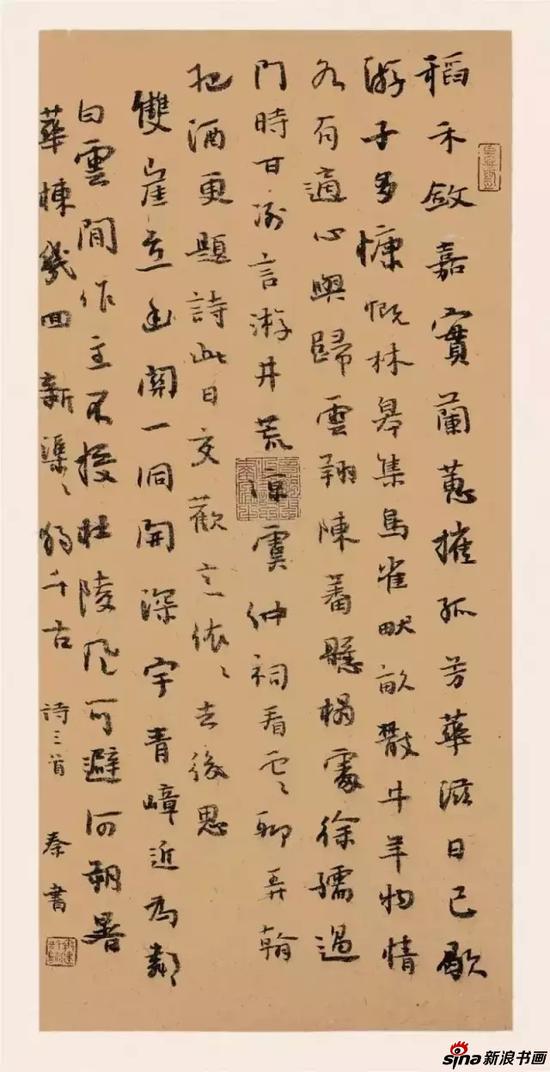 稻禾斂嘉實蘭蕙摧孤芳華滋日已歇
游子多慷慨林皋集鳥雀畎畝散牛羊物情
各有適心與歸雲翔陳蕃懸榻處徐孺過
門時甘冽言游井荒涼虞仲祠看雲聊弄翰
把酒更題詩此日交歡意依〻去後思
雙崖立幽關一洞開深宇青嶂近為鄰
白雲閒作主不杜陵可避河朔暑
華棟幾回新渠〻千古 詩三首 秦書
sina新浪书画